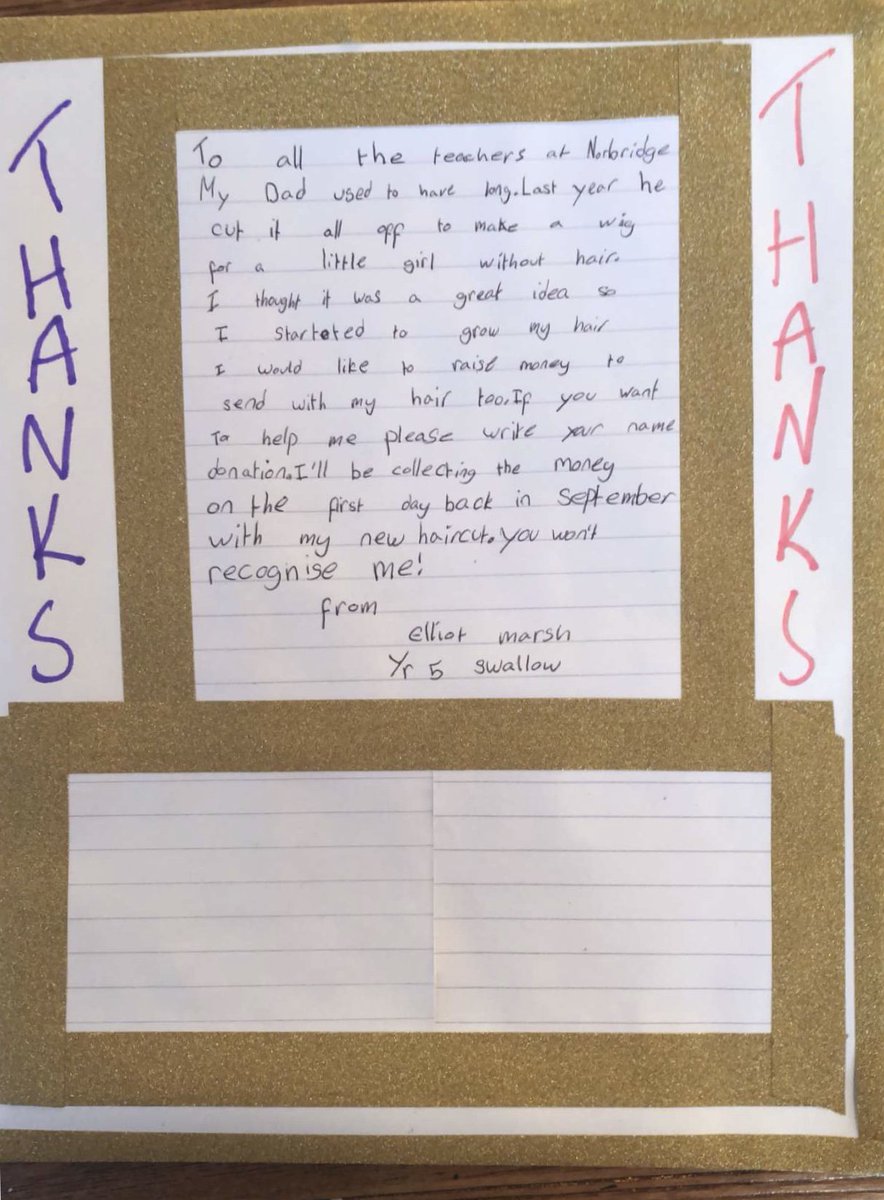 THANKS
To all the teachers at Norbridge
My Dad used to have long.Last year he
cut it all off to make a wig
for a little girl without hair.
I thought it was a great idea so
I starteted to grow my hair
I would like to raise money to
send with my hair too.If you want
To help me please write your name
donation.I'll be collecting the money
on the first day back in September
with my new haircut.you won't
recognise me!
from
elliot marsh
Yr 5 swallow
THANKS